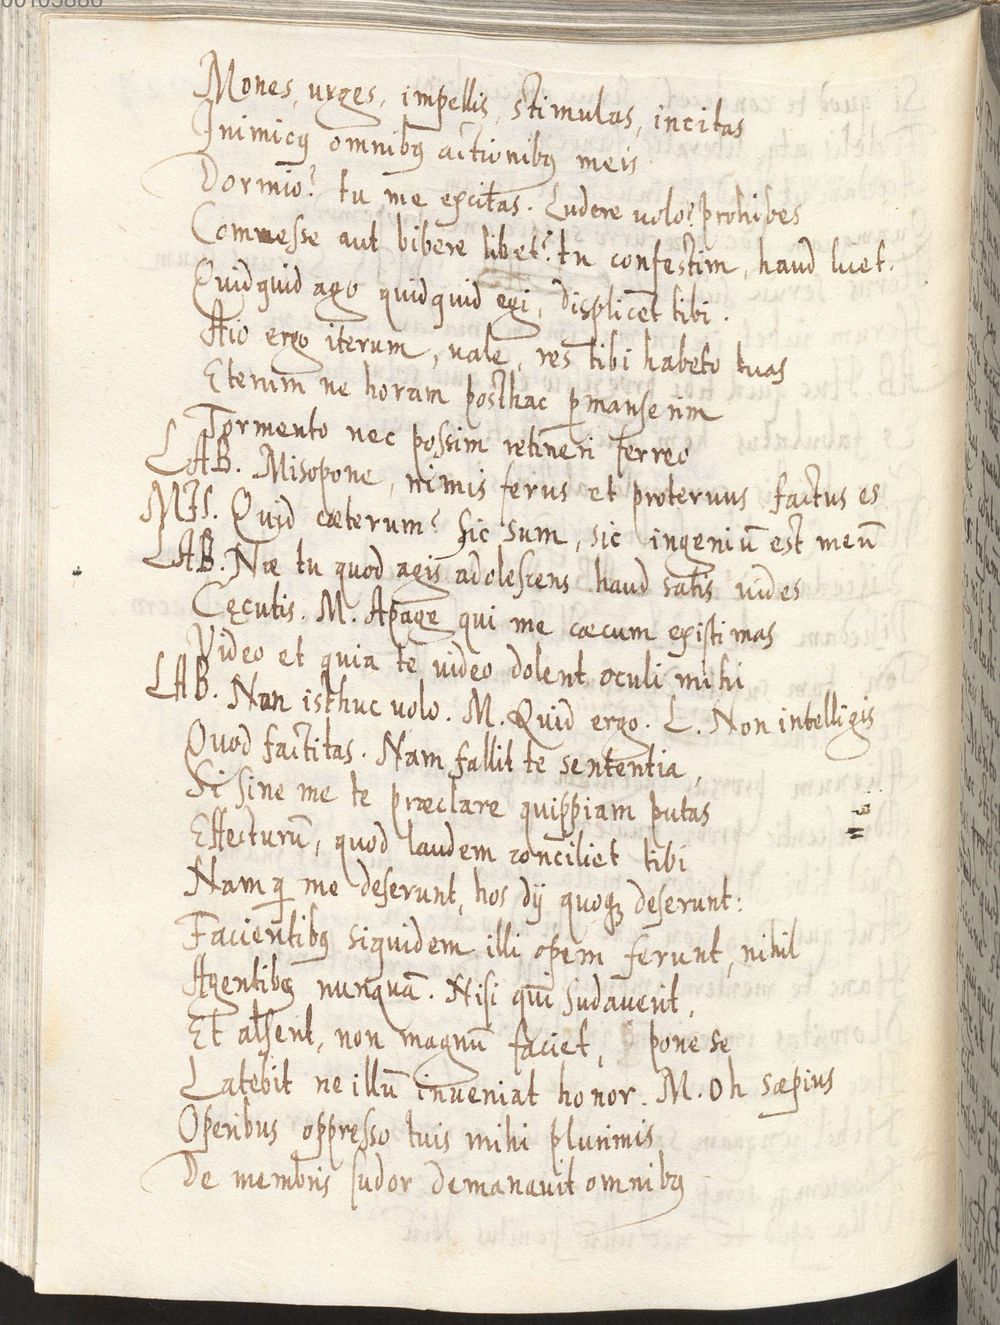 00105886
Mones, urges, impellis, stimulas, incitas
Inimicꝰ omnibꝰ actionibꝰ meis
Dormio? tu me excitas. Ludere uolo? prohibes
Commesse aut bibere libet? tu confestim, haud licet.
Quidquid ago quidquid egi, displicet tibi.
Aio ergo iterum, uale, res tibi habeto tuas
Etenim ne horam posthac ꝑmanserim
Tormento nec possim retineri ferreo
LAB. Misopone, nimis ferus et proteruus factus es
MIS. Quid cæterum? sic sum, sic ingeniũ est meũ
LAB. Næ tu quod agis adolescens haud satis uides
Cęcutis. M. Apage qui me cæcum existimas
Video et quia te uideo dolent oculi mihi
LAB. Non isthuc uolo. M. Quid ergo. L. Non intelligis
Quod factitas. Nam fallit te sententia,
Si sine me te præclare quippiam putas
Effecturũ, quod laudem conciliet tibi
Nam q̃ me deserunt, hos dij quoqꝫ deserunt:
Facientibꝰ siquidem illi opem ferunt, nihil
Agentibꝰ nunquã. Nisi qui sudauerit,
Et alserit, non magnũ faciet, pone se
Latebit ne illũ inueniat honor. M. Oh sæpius
Operibus oppresso tuis mihi plurimis
De membris sudor demanauit omnibꝰ